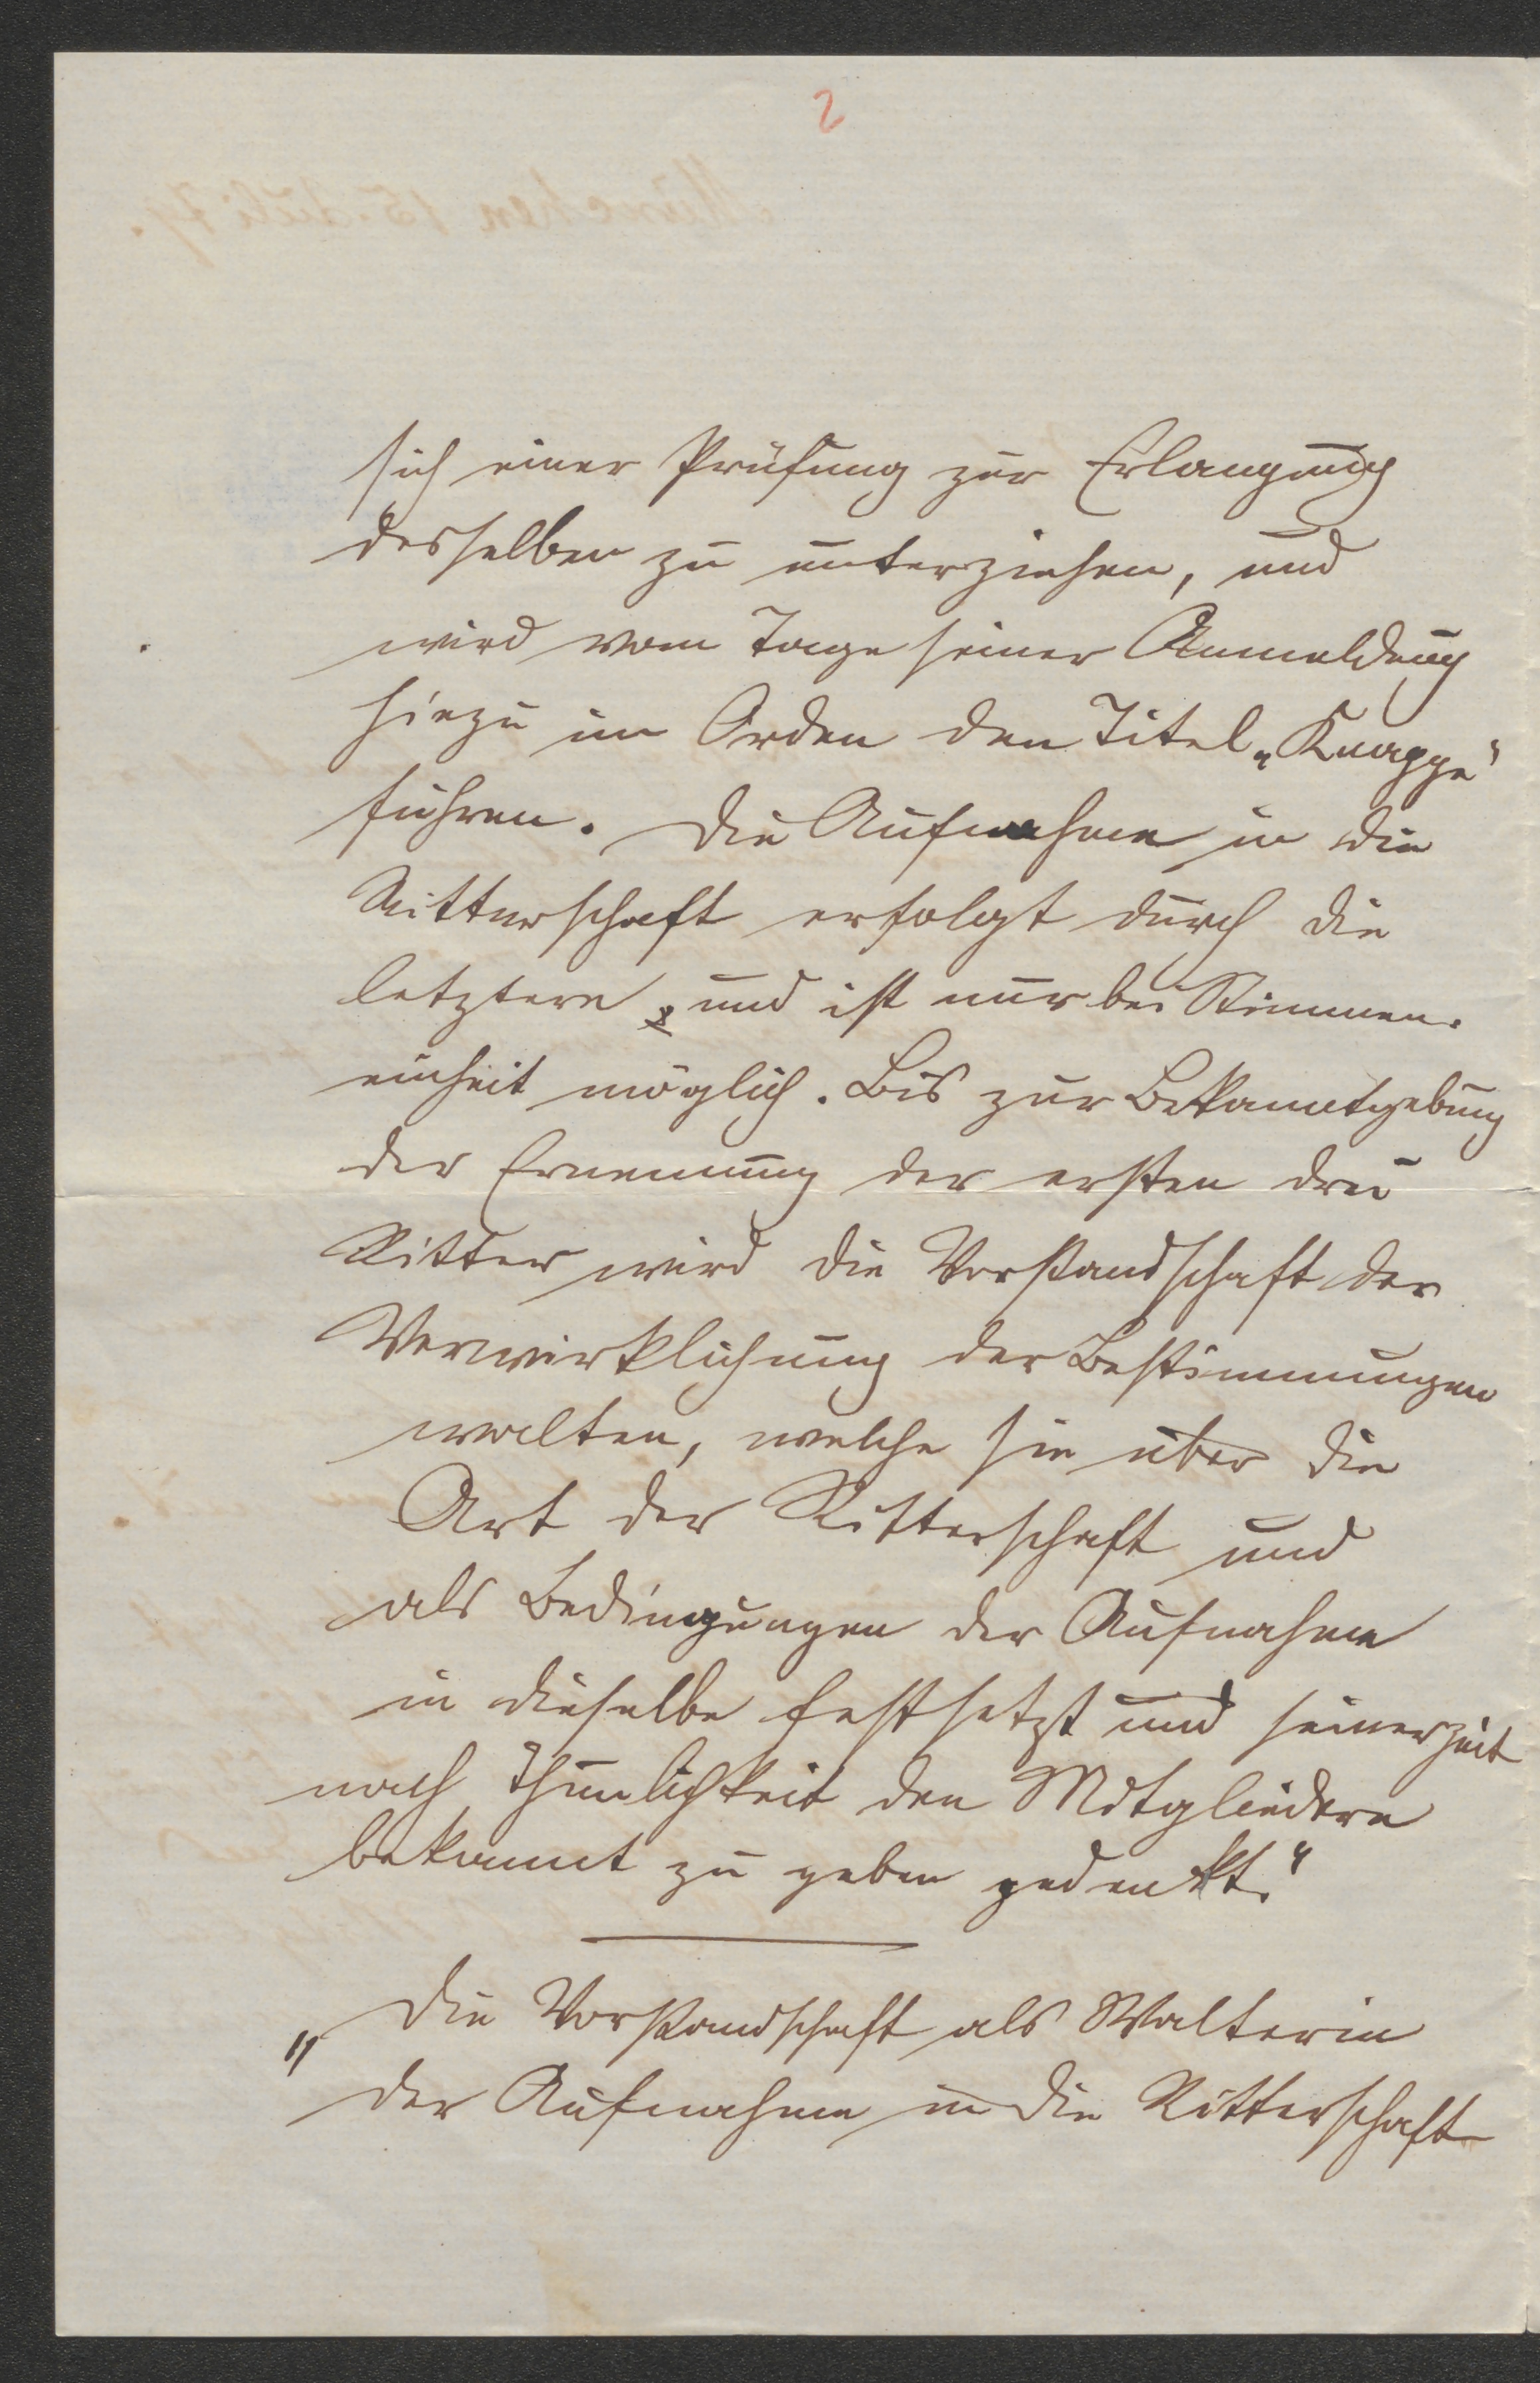 2
sich einer Prüfung zur Erlangung
desselben zu unterziehen, und
wird vom Tage seiner Anmeldung
hiezu im Orden den Titel „Knappe“
führen. Die Aufnahme in die
Ritterschaft erfolgt durch die
letztere, und ist nur bei Stimmen-
einheit möglich. Bis zur Bekanntgebung
der Ernennung der ersten drei
Ritter wird die Vorstandschaft der
Verwirklichung der Bestimmungen
walten, welche sie über die
Art der Ritterschaft und
als Bedingungen der Aufnahme
in dieselbe festsetzt und seinerzeit
nach Thunlichkeit den Mitgliedern
bekannt zu geben gedenkt.“
„Die Vorstandschaft als Walterin
der Aufnahme in die Ritterschaft